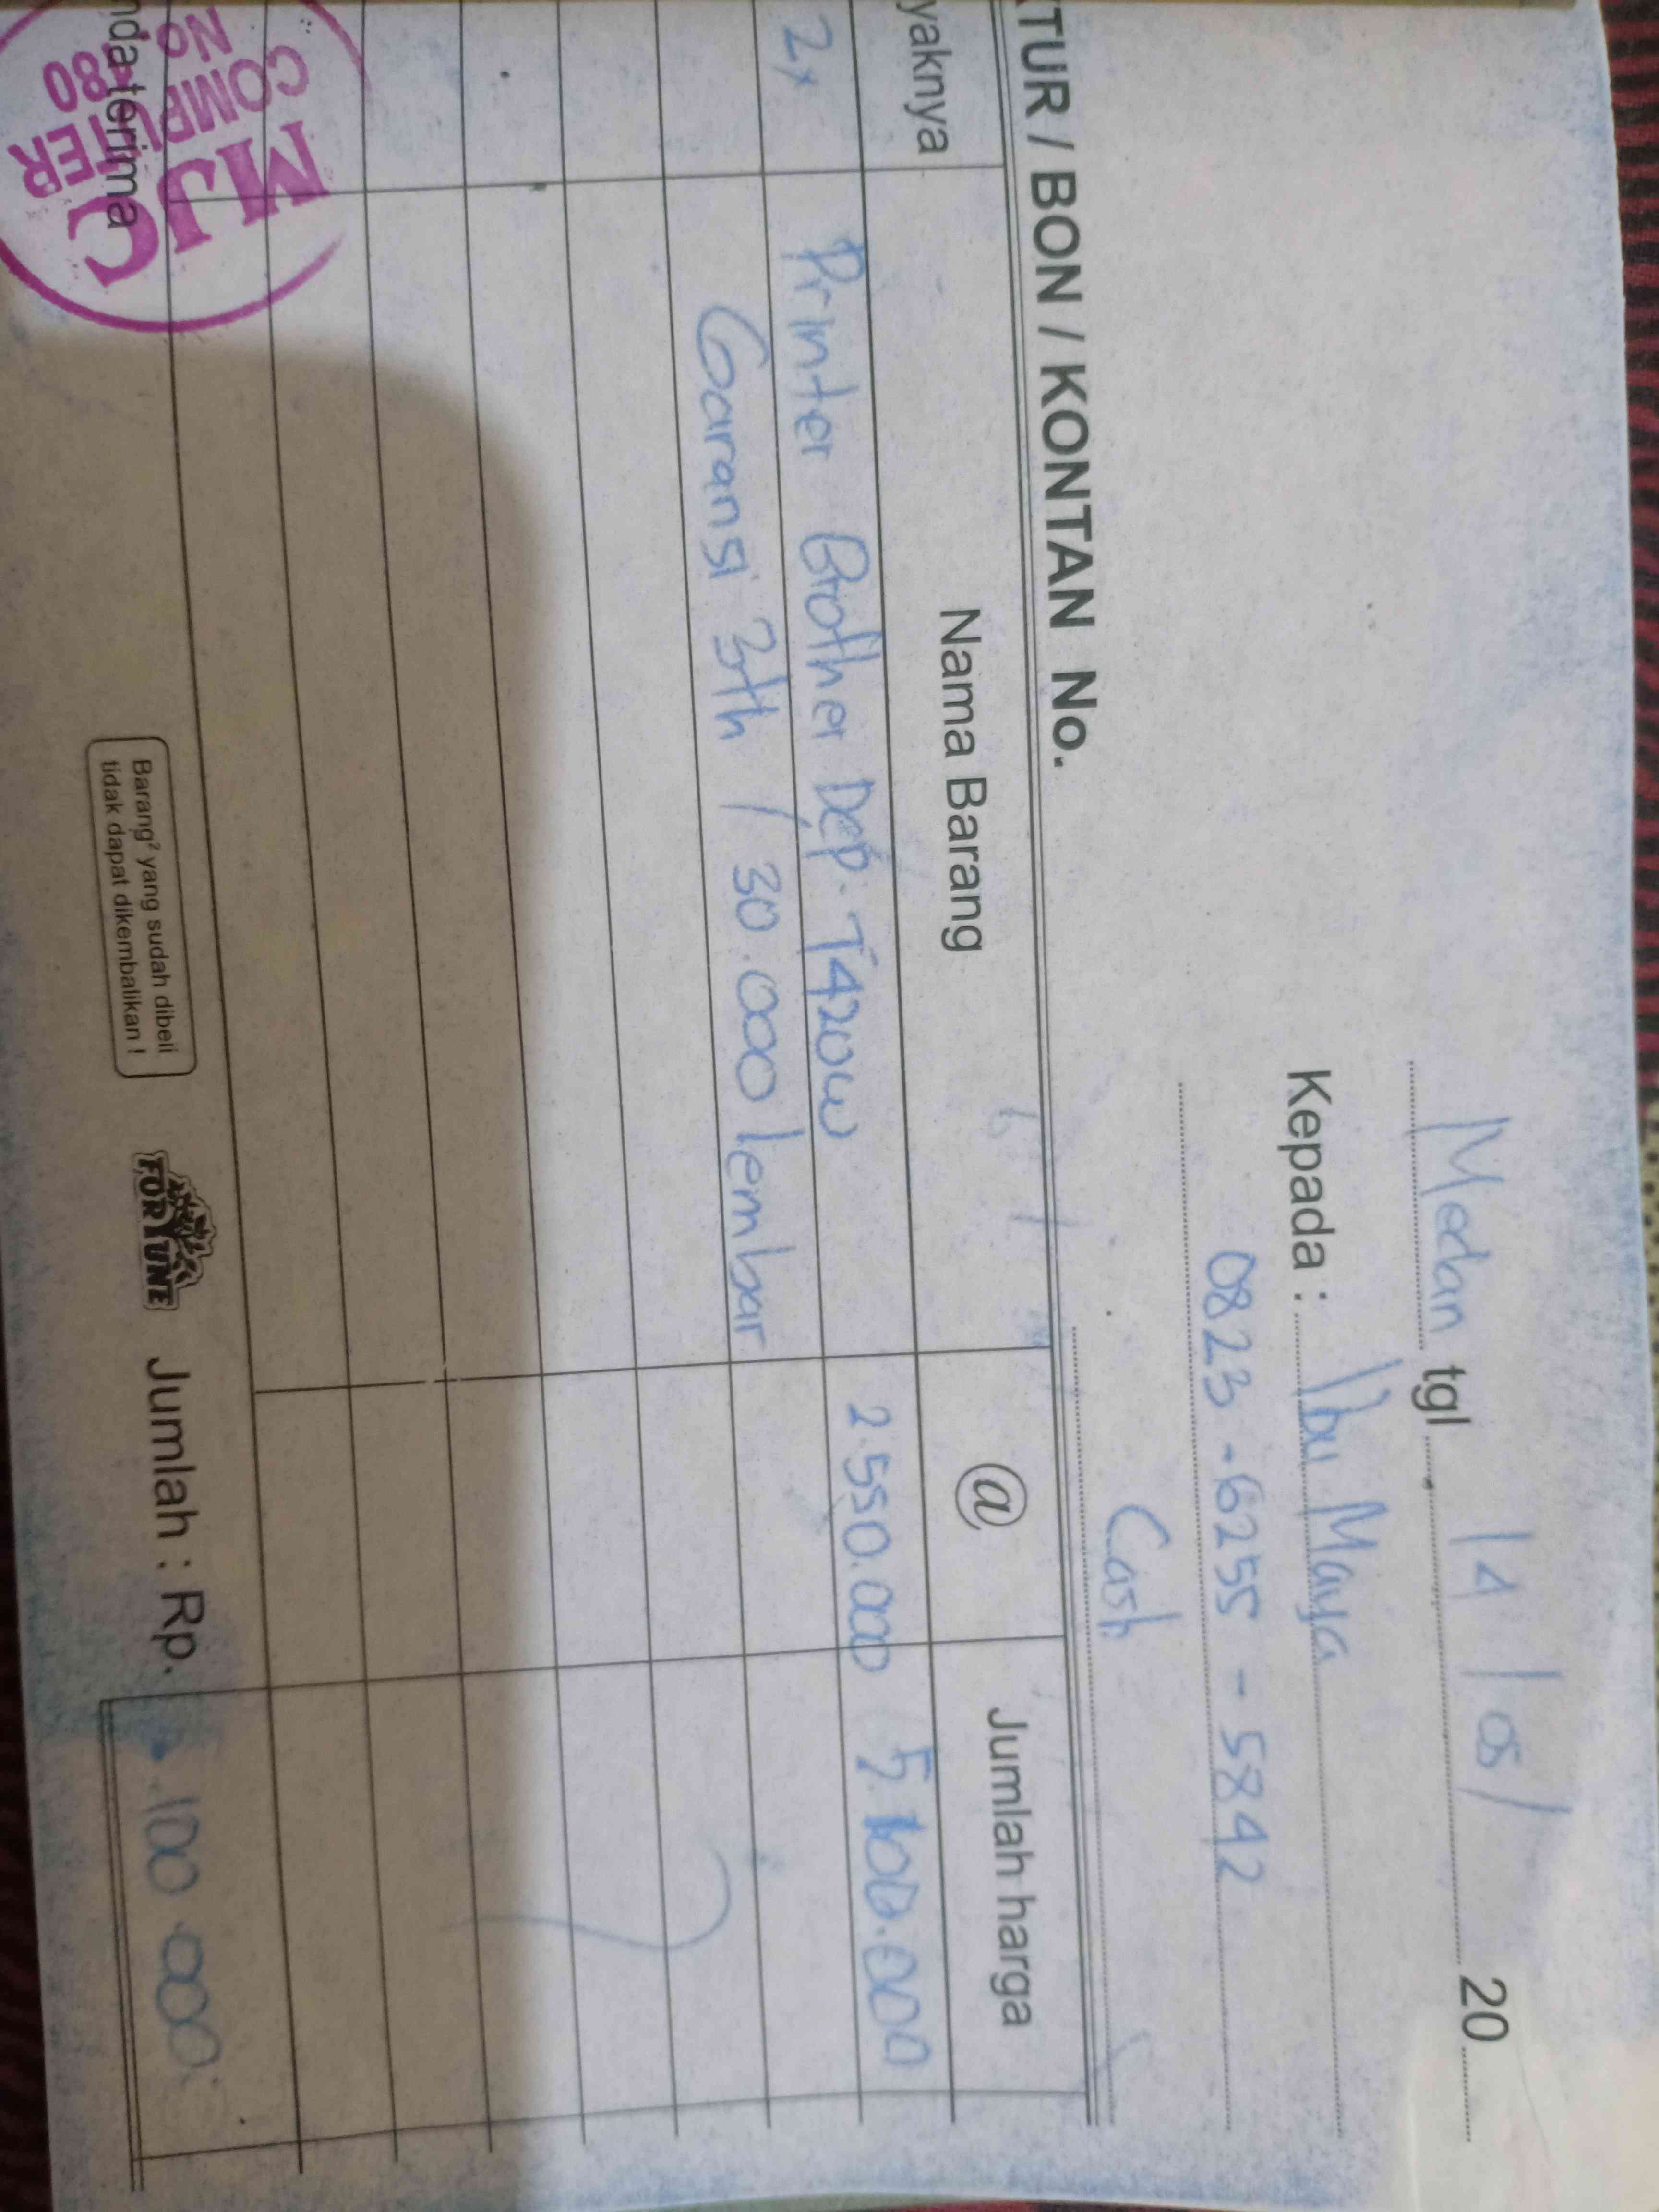 Medan tgl 14/05/ 20
Kepada : Ibu Maya
0823-6255-5842
Cash
TUR / BON / KONTAN No.
yaknya Nama Barang @ Jumlah harga
2x Printer Brother Dcp.T420w 2.550.000 5.100.000
Garansi 3th / 30.000 lembar
nda terima
MJC
COMPUTER
NO 80
Barang² yang sudah dibeli
tidak dapat dikembalikan !
FORTUNE
Jumlah : Rp. 100.000